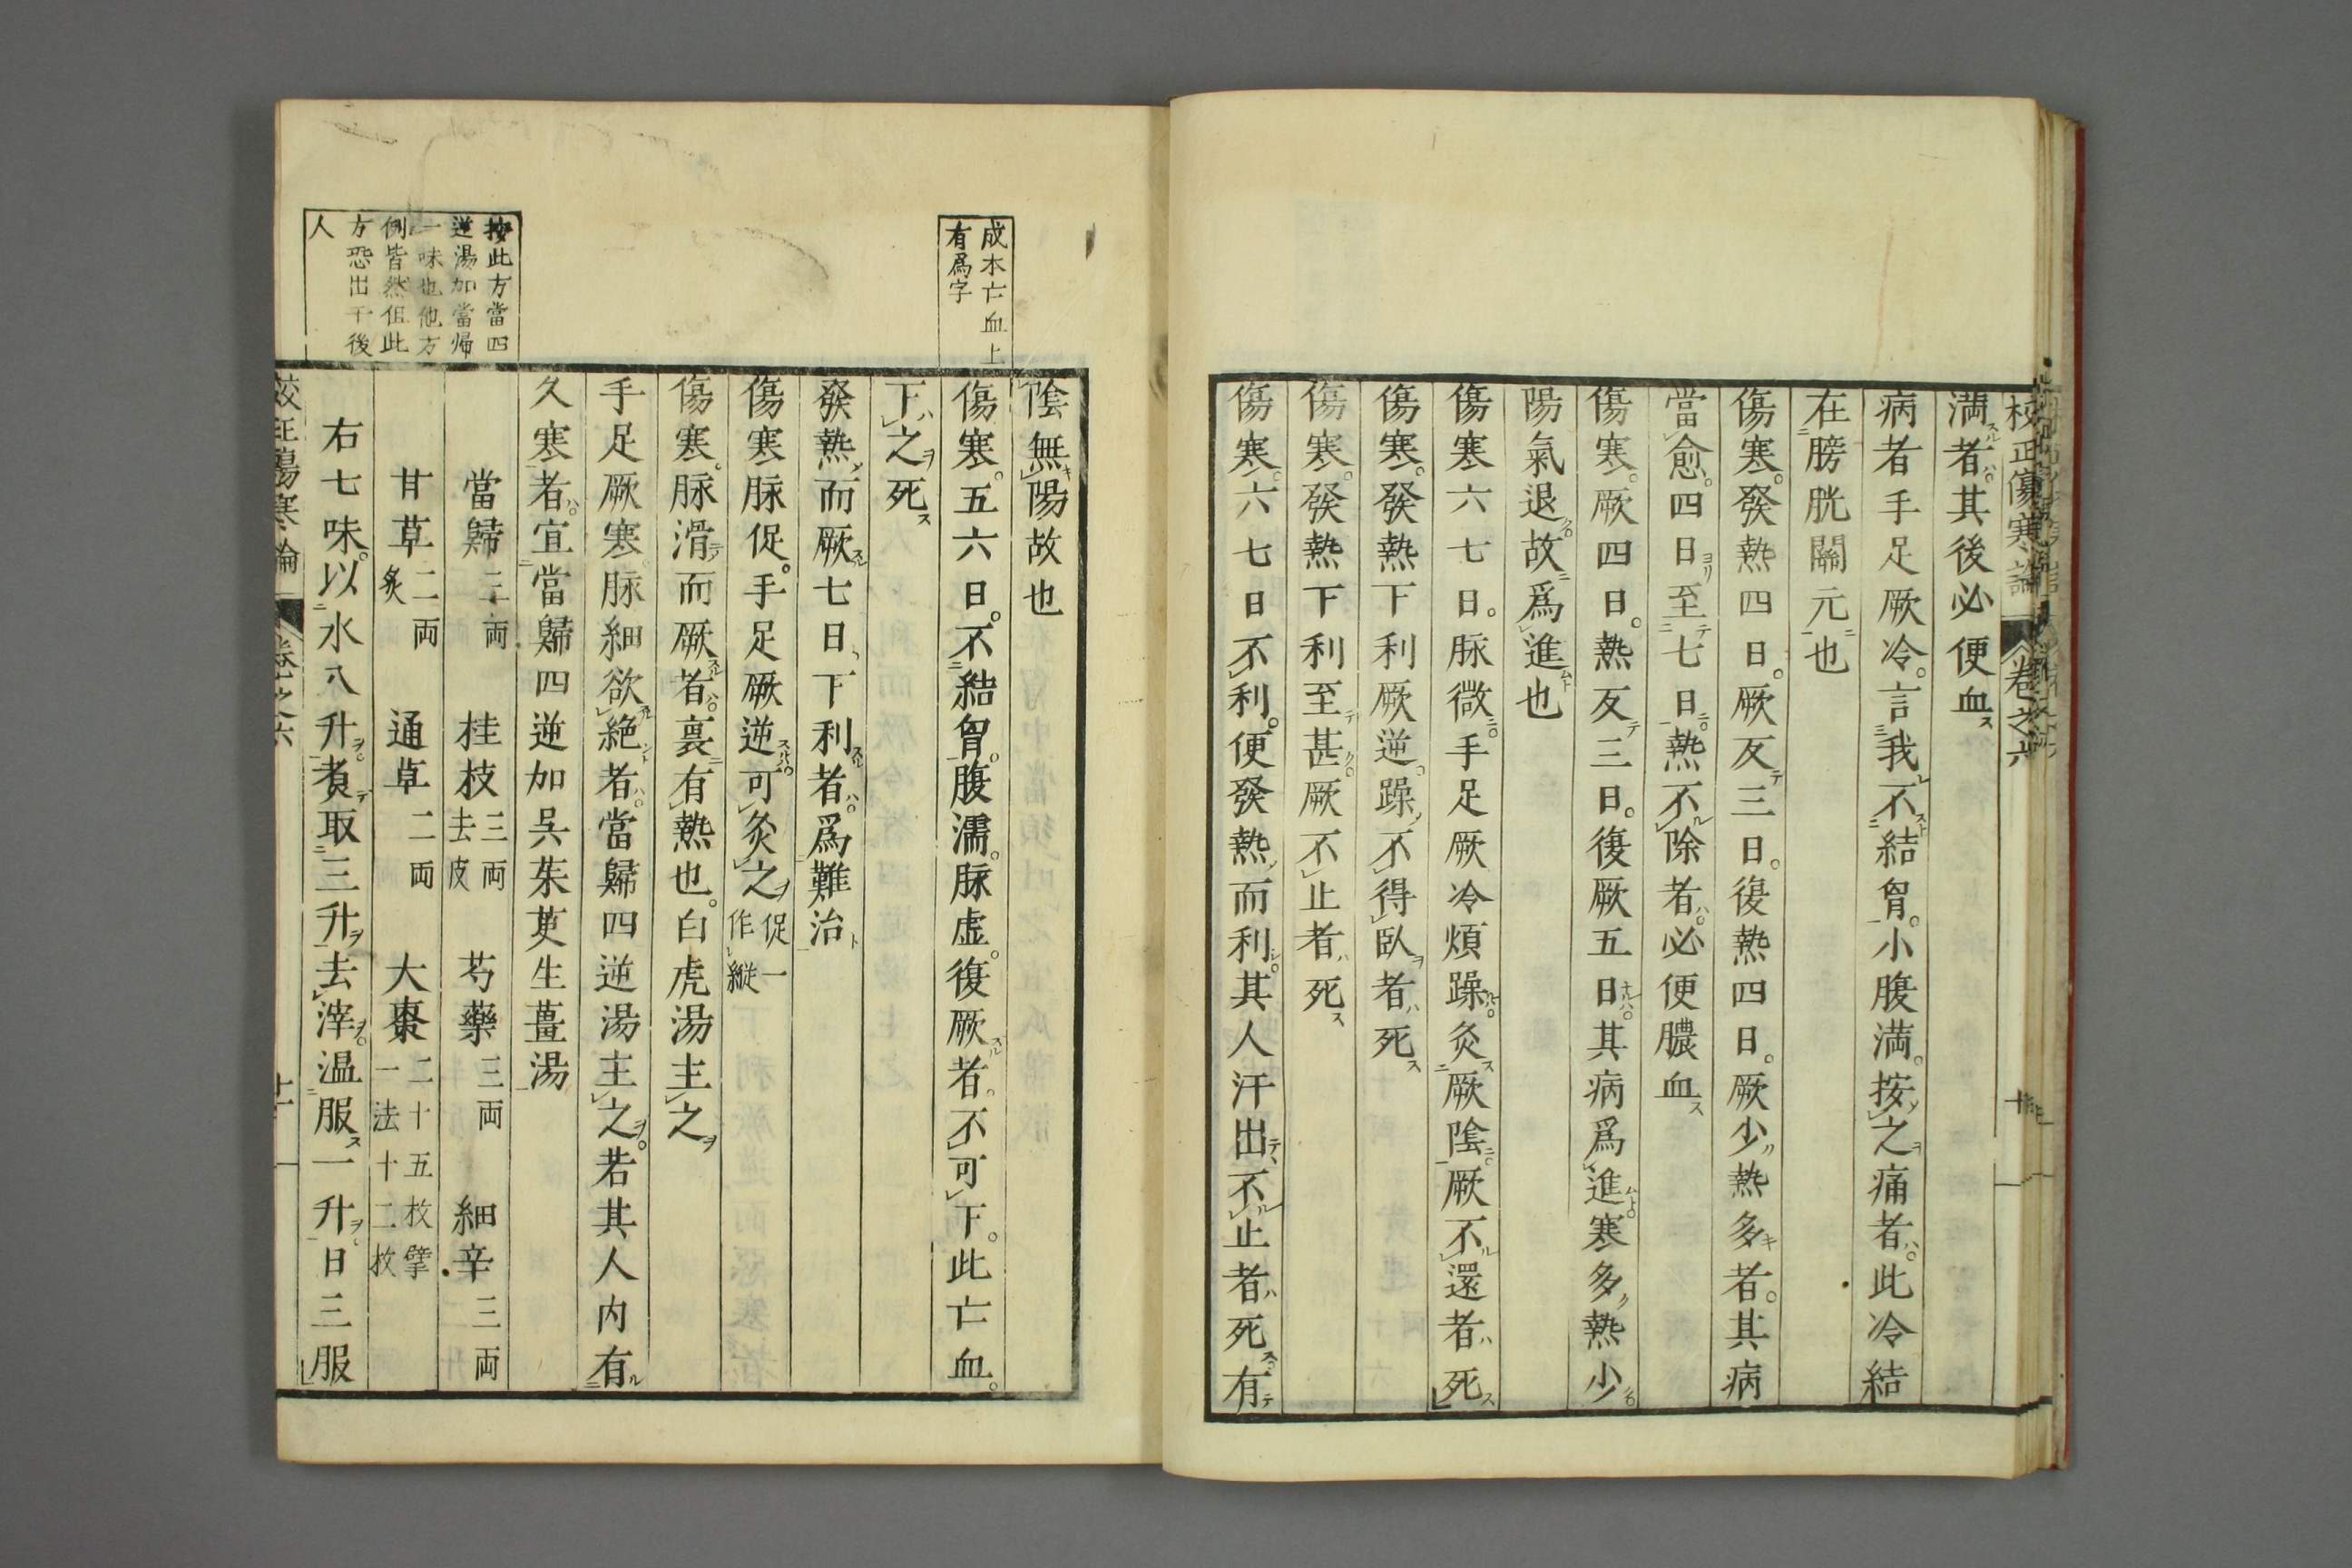 校正傷寒論 卷之六
満者其後必便血
病者手足厥冷言我不結胷小腹満按之痛者此冷結
在膀胱關元也
傷寒發熱四日厥反三日復熱四日厥少熱多者其病
當愈四日至七日熱不除者必便膿血
傷寒厥四日熱反三日復厥五日其病爲進寒多熱少
陽氣退故爲進也
傷寒六七日脉微手足厥冷煩躁灸厥陰厥不還者死
傷寒發熱下利厥逆躁不得臥者死
傷寒發熱下利至甚厥不止者死
傷寒六七日不利便發熱而利其人汗出不止者死有
陰無陽故也
成本亡血上
有爲字
傷寒五六日不結胷腹濡脉虚復厥者不可下此亡血
下之死
發熱而厥七日下利者爲難治
傷寒脉促手足厥逆可灸之促一
作縱
傷寒脉滑而厥者裏有熱也白虎湯主之
手足厥寒脉細欲絶者當歸四逆湯主之若其人内有
久寒者宜當歸四逆加呉茱萸生薑湯
按此方當四
逆湯加當帰
一味也他方
例皆然但此
方恐出于後
人
當歸三両 桂枝三両去皮 芍藥三両 細辛三両
甘草二両炙 通草二両 大棗二十五枚擘一法十二枚
右七味以水八升煑取三升去滓温服一升日三服
校正傷寒論 卷之六